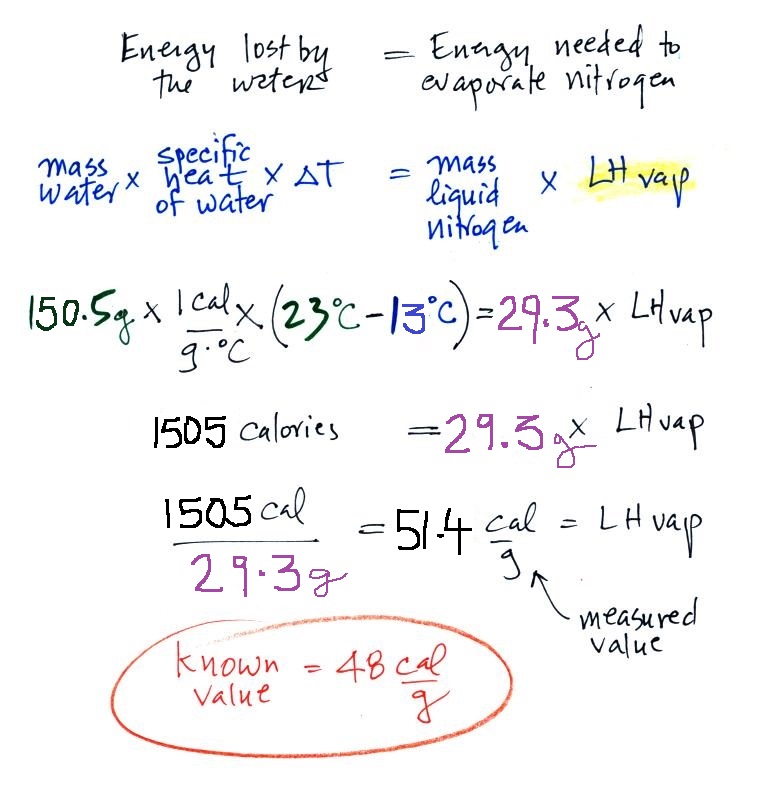 Energy lost by = Energy needed to
the water evaporate nitrogen
mass water × specific heat of water × ΔT = mass liquid nitrogen × LH vap
150.5g × 1 cal/g·°C × (23°C - 13°C) = 29.3g × LH vap
1505 calories = 29.3g × LH vap
1505 cal/29.3g = 51.4 cal/g = LH vap
measured
value
known value = 48 cal/g